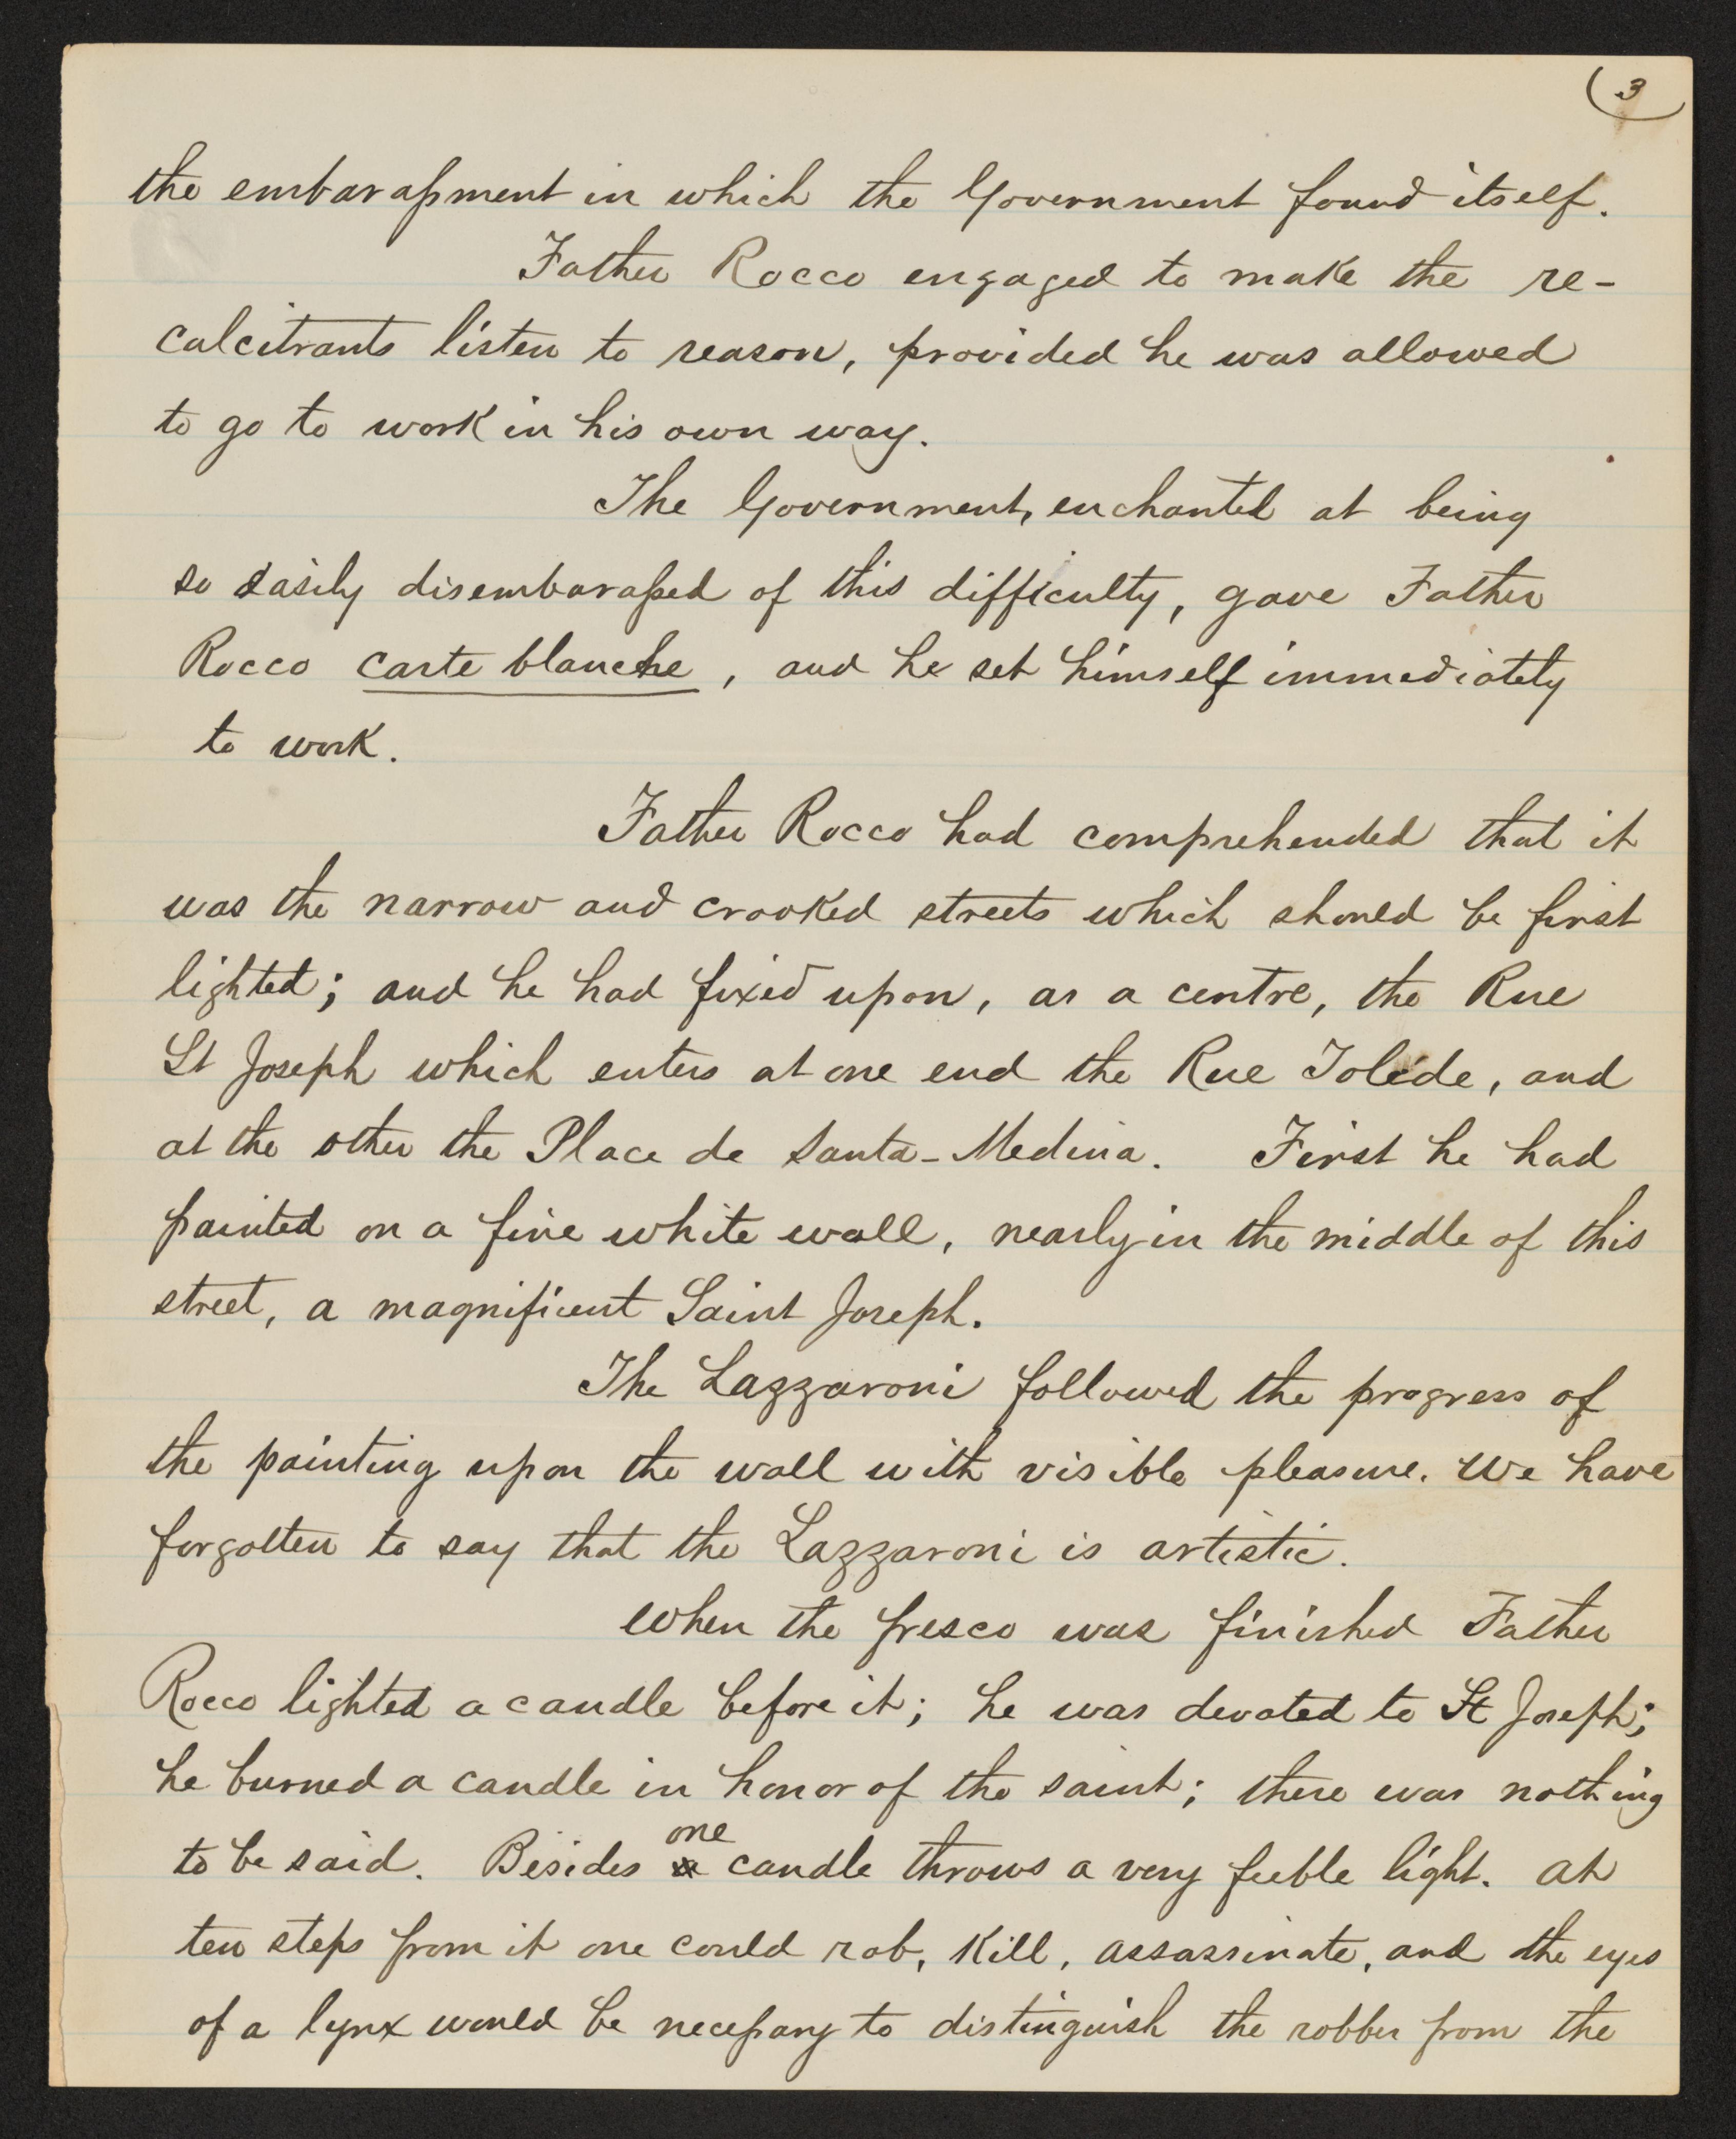 (3
the embarassment in which the Government found itself.
Father Rocco engaged to make the re-
calcitrants listen to reason, provided he was allowed
to go to work in his own way.
The Government, enchanted at being
so easily disembarassed of this difficulty, gave Father
Rocco carte blanche, and he set himself immediately
to work.
Father Rocco had comprehended that it
was the narrow and crooked streets which should be first
lighted; and he had fixed upon, as a centre, the Rue
St Joseph which enters at one end the Rue Toléde, and
at the other the Place de Santa-Medina. First he had
painted on a fine white wall, nearly in the middle of this
street, a magnificent Saint Joseph.
The Lazzaroni followed the progress of
the painting upon the wall with visible pleasure. We have
forgotten to say that the Lazzaroni is artistic.
When the fresco was finished Father
Rocco lighted a candle before it; he was devoted to St Joseph;
he burned a candle in honor of the saint; there was nothing
one
to be said. Besides a candle throws a very feeble light. At
ten steps from it one could rob, kill, assassinate, and the eyes
of a lynx would be necessary to distinguish the robber from the